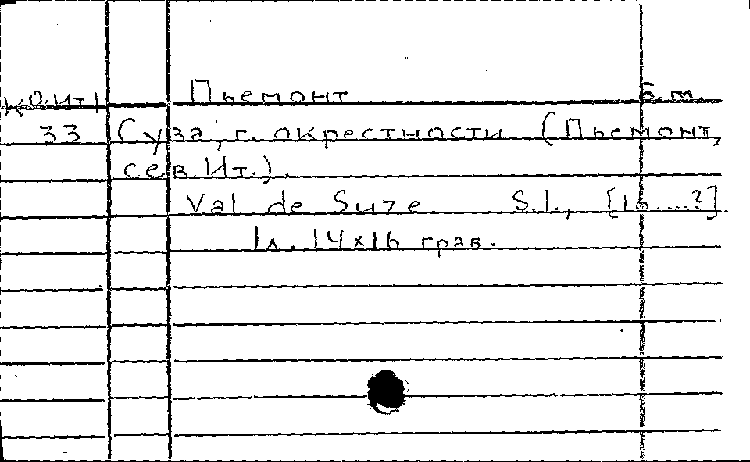 КО.Ит1 Пьемонт б.м.
33 Суза, г. окрестности (Пьемонт,
сев Ит.).
Val de Suze S.l., [16....?]
1л. 14x16 грав.